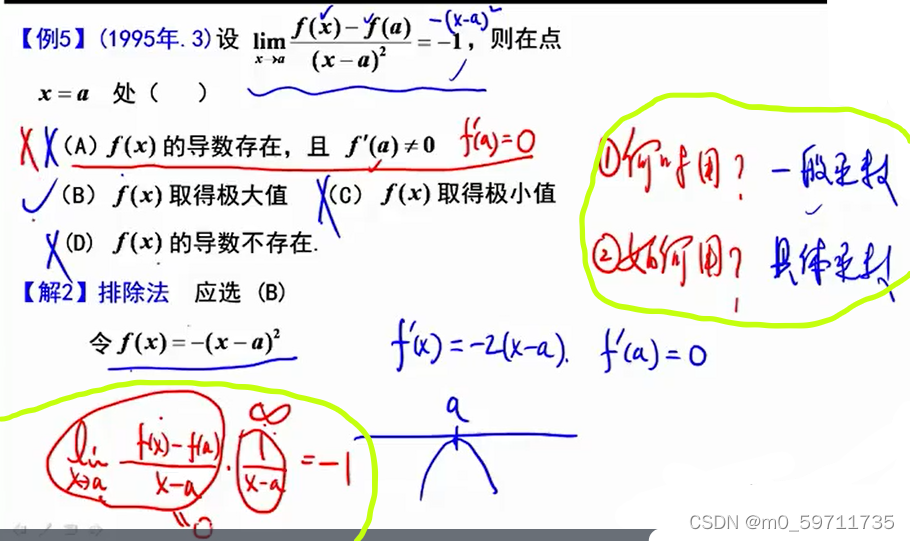 【例5】(1995年.3)设 lim x→a f(x)−f(a) / (x−a)² = −1, 则在点
−(x−a)²
x = a 处( )
(A) f(x) 的导数存在，且 f′(a) ≠ 0 f′(a)=0
(B) f(x) 取得极大值 (C) f(x) 取得极小值
(D) f(x) 的导数不存在.
①何时用? 一般函数
②如何用? 具体函数
【解2】排除法 应选 (B)
令 f(x) = −(x − a)² f′(x) = −2(x−a). f′(a) = 0
a
lim x→a f(x)−f(a) / x−a · 1 / x−a = −1
∞
=0
CSDN @m0_59711735